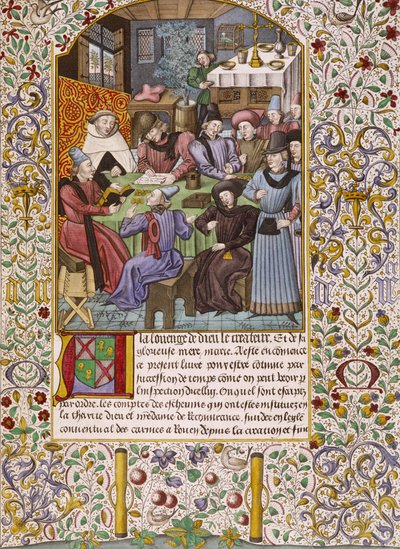 la louenge de dieu le createur. Et de sa
glorieuse mere marie. A este encomance
ce present livre pour estre cotinue par
succession de temps cõme on peut veoir p̱
linspection dicelluy. Ouquel sont escriptz
par ordre les comptes des eschevins qui ont este instituez en
la charite dieu et nr̃e dame de Recouvrance. fundee en leglẽ
conventual des carmes a Rouen depuis la creation et fun